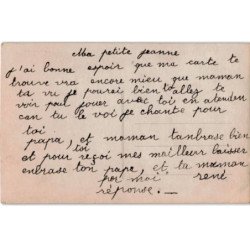 Ma petite jeanne
j'ai bonne espoir que ma carte te
trouve vra encore mieu que maman
ta vu je pourai bien to alles te
voir pour jouer avec toi en atenden
can tu le voi je chante pour
toi
papa, et maman tanbrase bien
toi
et pour reçoi mes mailleur baisser
enbrase ton pape, et ta maman
por moi rené
réponse. —